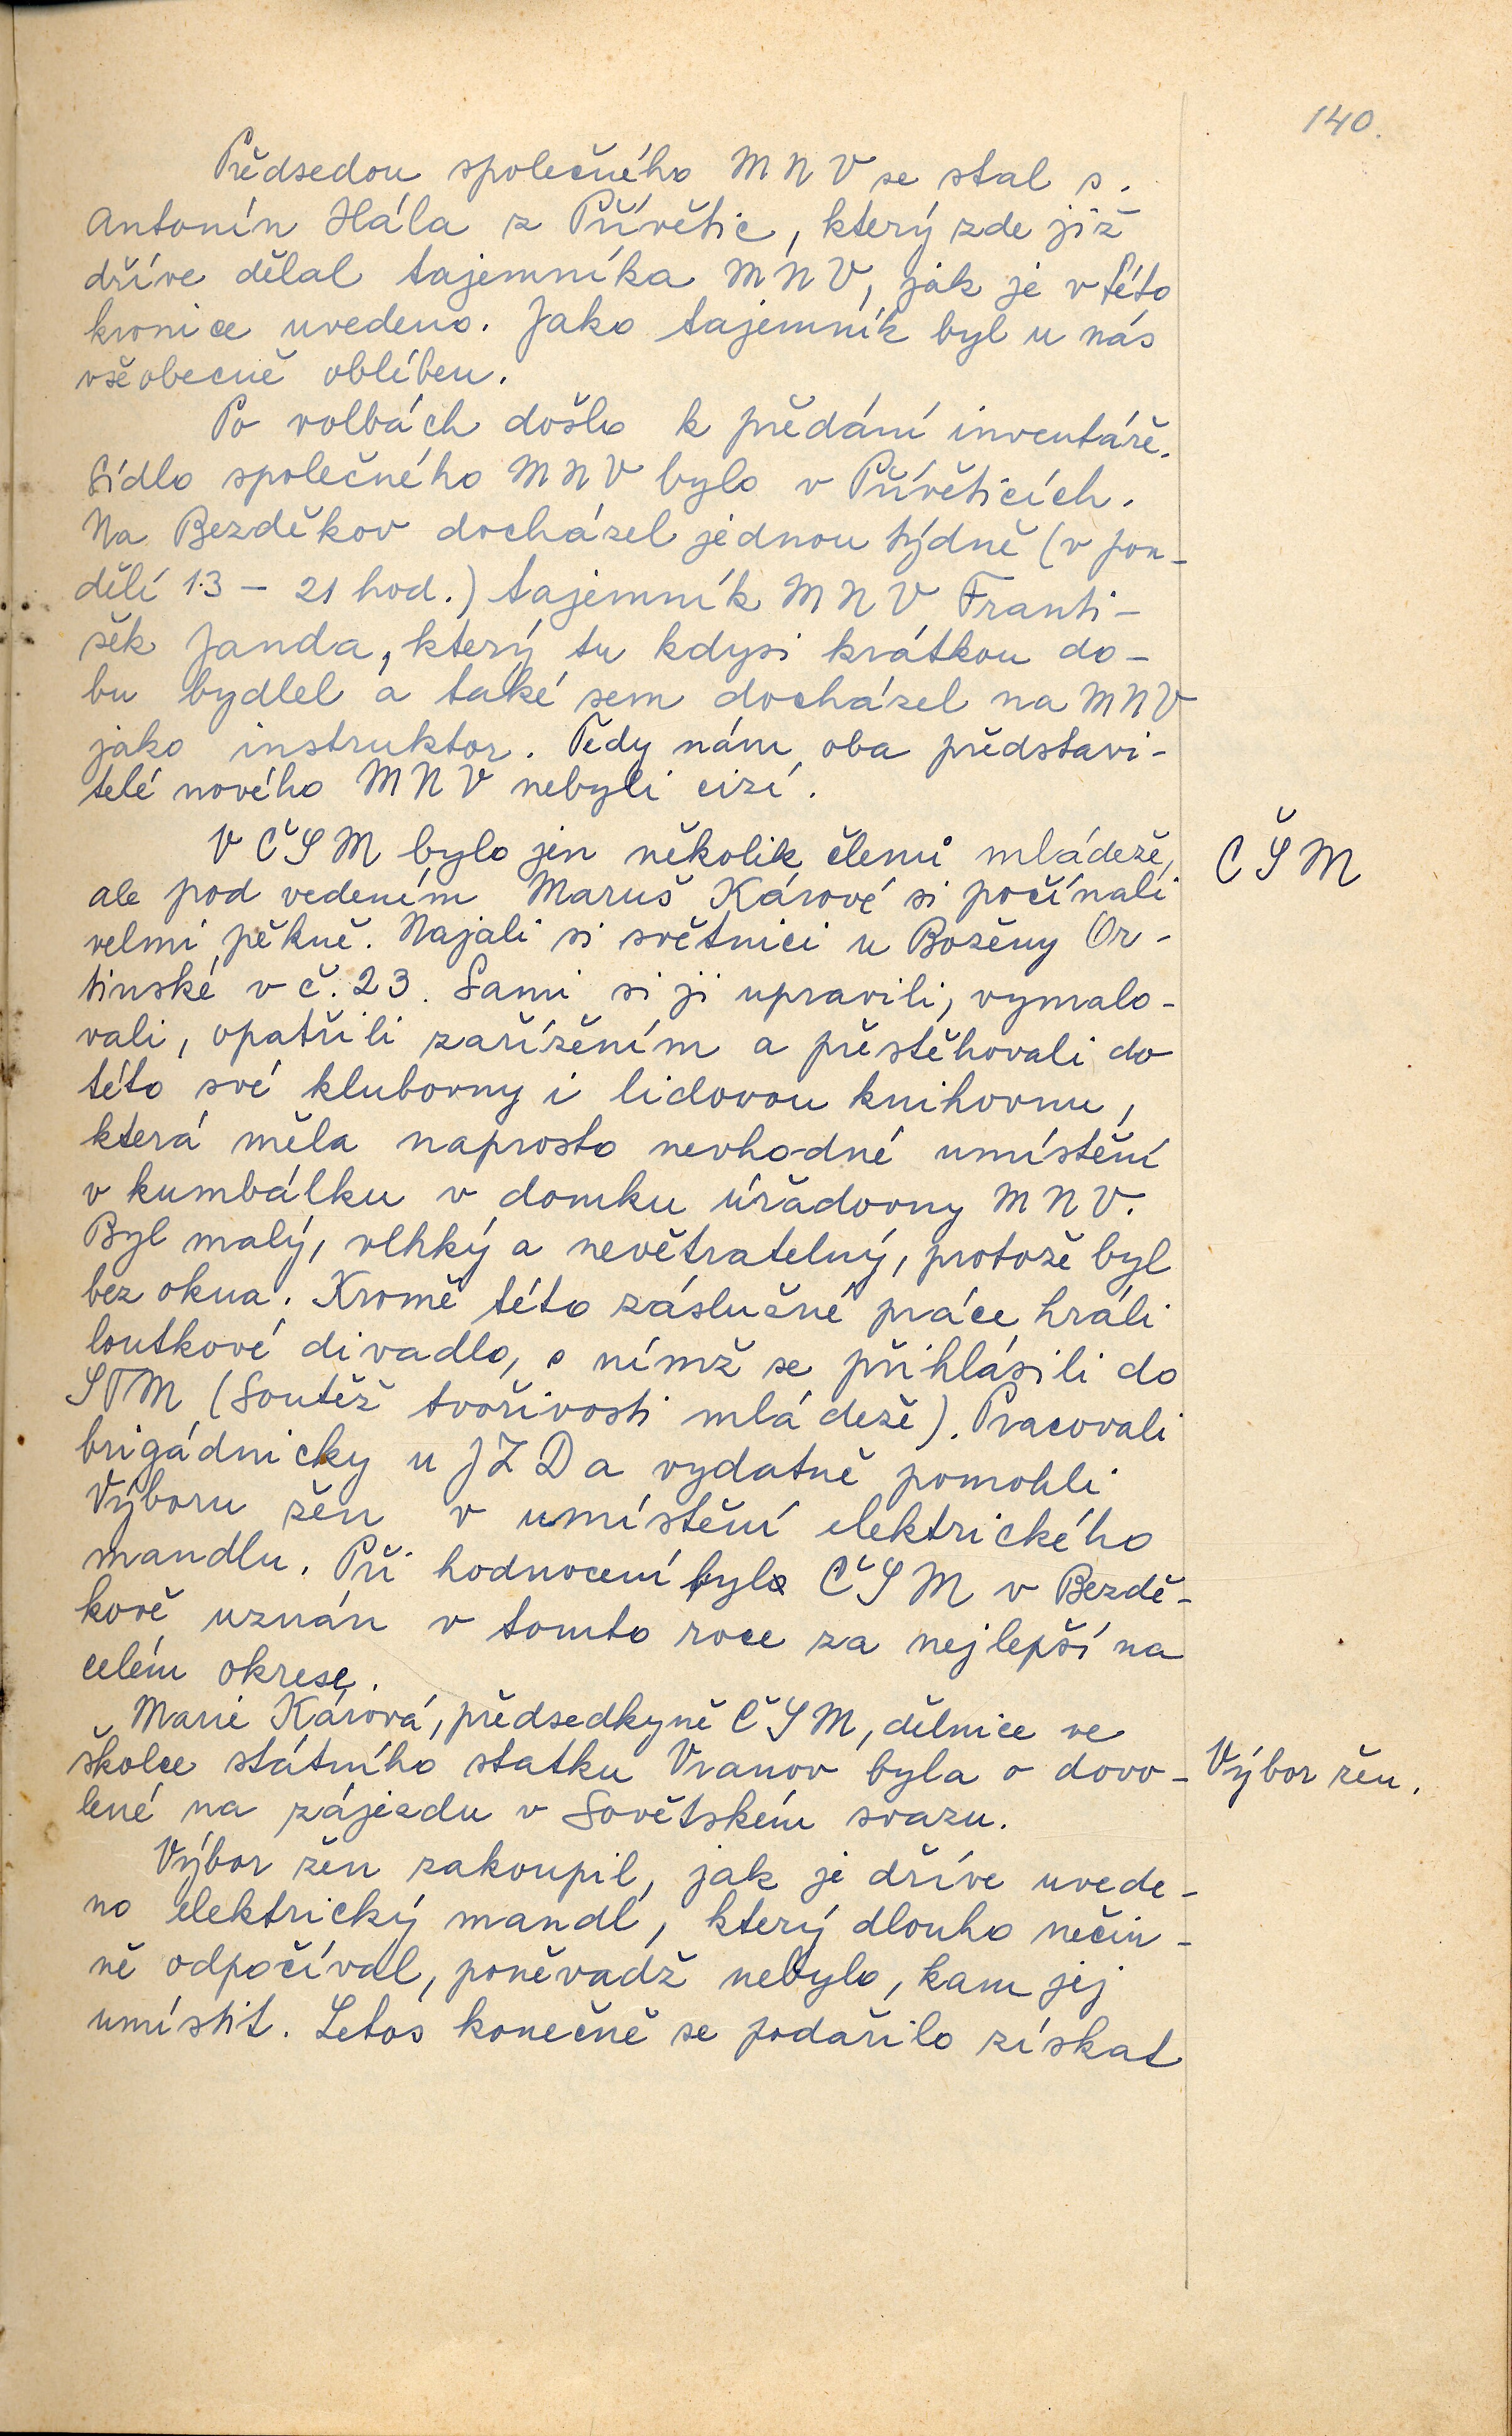 140.
Předsedou společného MNV se stal s.
Antonín Hála z Přívětic, který zde již
dříve dělal tajemníka MNV, jak je v této
kronice uvedeno. Jako tajemník byl u nás
všeobecně oblíben.
Po volbách došlo k předání inventáře.
Sídlo společného MNV bylo v Příveticích.
Na Bezděkov docházel jednou týdně (v pon-
dělí 13 - 21 hod.) tajemník MNV Franti-
šek Janda, který tu kdysi krátkou do-
bu bydlel a také sem docházel na MNV
jako instruktor. Tedy nám oba představi-
telé nového MNV nebyli cizí.
V ČSM bylo jen několik členů mládeže,
ČSM
ale pod vedením Maruš Kárové si počínali
velmi pěkně. Najali si světnici u Boženy Or-
tinské v č. 23. Sami si ji upravili, vymalo-
vali, opatřili zařízením a přestěhovali do
této své klubovny i lidovou knihovnu,
která měla naprosto nevhodné umístění
v kumbálku v domku úřadovny MNV.
Byl malý, vlhký a nevětratelný, protože byl
bez okna. Kromě této záslučné práce hráli
loutkové divadlo, s nímž se přihlásili do
STM (Soutěž tvořivosti mládeže). Pracovali
brigádnicky u JZD a vydatně pomohli
Výboru žen v umístění elektrického
mandlu. Při hodnocení byla ČSM v Bezdě-
kově uznán v tomto roce za nejlepší na
celém okrese.
Marie Kárová, předsedkyně ČSM, dělnice ve
školce státního statku Vranov byla o dovo-
Výbor žen.
lené na zájezdu v Sovětském svazu.
Výbor žen zakoupil, jak je dříve uvede-
no elektrický mandl, který dlouho nečin-
ně odpočíval, poněvadž nebylo, kam jej
umístit. Letos konečně se podařilo získat